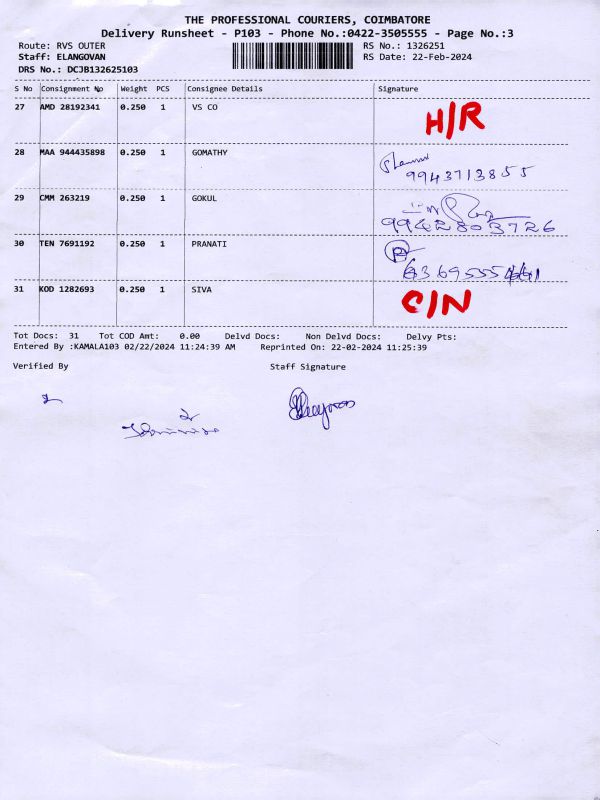 THE PROFESSIONAL COURIERS, COIMBATORE
Delivery Runsheet - P103 - Phone No.:0422-3505555 - Page No.:3
Route: RVS OUTER RS No.: 1326251
Staff: ELANGOVAN RS Date: 22-Feb-2024
DRS No.: DCJB132625103
S No Consignment No Weight PCS Consignee Details Signature
27 AMD 28192341 0.250 1 VS CO H/R
28 MAA 944435898 0.250 1 GOMATHY
9943713855
29 CMM 263219 0.250 1 GOKUL
9942803726
30 TEN 7691192 0.250 1 PRANATI
31 KOD 1282693 0.250 1 SIVA C/N
Tot Docs: 31 Tot COD Amt: 0.00 Delvd Docs: Non Delvd Docs: Delvy Pts:
Entered By :KAMALA103 02/22/2024 11:24:39 AM Reprinted On: 22-02-2024 11:25:39
Verified By Staff Signature